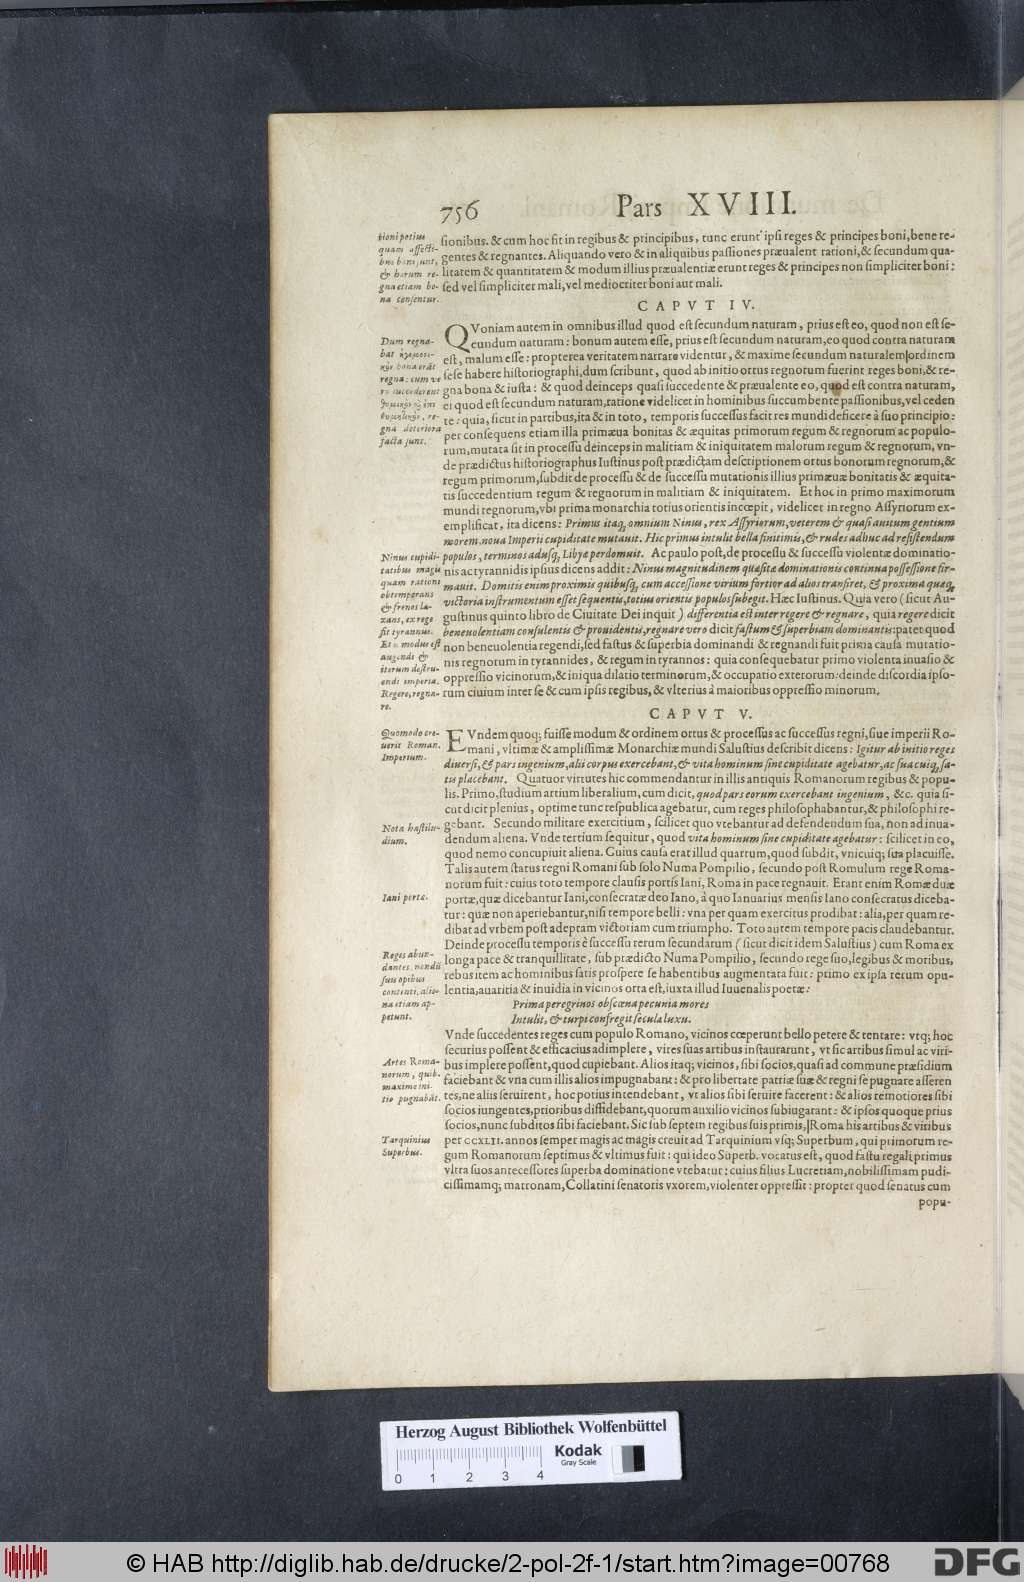 756 Pars XVIII.
sionibus. & cum hoc fit in regibus & principibus, tunc erunt ipsi reges & principes boni, bene re-
gentes & regnantes. Aliquando vero & in aliquibus passiones præualent rationi, & secundum qua-
litatem & quantitatem & modum illius præualentiæ erunt reges & principes non simpliciter boni:
sed vel simpliciter mali, vel mediocriter boni aut mali.
tioni potius
quam affecti-
bus boni sunt,
& horum re-
gna etiam bo-
na censentur.
CAPVT IV.
QVoniam autem in omnibus illud quod est secundum naturam, prius est eo, quod non est se-
cundum naturam: bonum autem esse, prius est secundum naturam, eo quod contra naturam
est, malum esse: propterea veritatem narrare videntur, & maxime secundum naturalem ordinem
sese habere historiographi, dum scribunt, quod ab initio ortus regnorum fuerint reges boni, & re-
gna bona & iusta: & quod deinceps quasi succedente & præualente eo, quod est contra naturam,
ei quod est secundum naturam, ratione videlicet in hominibus succumbente passionibus, vel ceden
te: quia, sicut in partibus, ita & in toto, temporis successus facit res mundi deficere à suo principio:
per consequens etiam illa primæua bonitas & æquitas primorum regum & regnorum ac populo-
rum, mutata sit in processu deinceps in malitiam & iniquitatem malorum regum & regnorum, vn-
de prædictus historiographus Iustinus post prædictam descriptionem ortus bonorum regnorum, &
regum primorum, subdit de processu & de successu mutationis illius primæuæ bonitatis & æquita-
tis succedentium regum & regnorum in malitiam & iniquitatem. Et hoc in primo maximorum
mundi regnorum, vbi prima monarchia totius orientis incœpit, videlicet in regno Assyriorum ex-
emplificat, ita dicens: Primus itaq; omnium Ninus, rex Assyriorum, veterem & quasi auitum gentium
morem, noua Imperii cupiditate mutauit. Hic primus intulit bella finitimis, & rudes adhuc ad resistendum
populos, terminos adusq; Libyæ perdomuit. Ac paulo post, de processu & successu violentæ dominatio-
nis ac tyrannidis ipsius dicens addit: Ninus magnitudinem quæsitæ dominationis continua possessione fir-
mauit. Domitis enim proximis quibusq; cum accessione virium fortior ad alios transiret, & proxima quæq;
victoria instrumentum esset sequentis, totius orientis populos subegit. Hæc Iustinus. Quia vero (sicut Au-
gustinus quinto libro de Ciuitate Dei inquit) differentia est inter regere & regnare, quia regere dicit
beneuolentiam consulentis & prouidentis, regnare vero dicit fastum & superbiam dominantis: patet quod
non beneuolentia regendi, sed fastus & superbia dominandi & regnandi fuit prima causa mutatio-
nis regnorum in tyrannides, & regum in tyrannos: quia consequebatur primo violenta inuasio &
oppressio vicinorum, & iniqua dilatio terminorum, & occupatio exterorum: deinde discordia ipso-
rum ciuium inter se & cum ipsis regibus, & vlterius à maioribus oppressio minorum.
Dum regna-
bat
bona erāt
regna: cum ve
ro succederent
re-
gna deteriora
facta sunt.
Ninus cupidi-
tatibus magis
quam rationi
obtemperans
& frenos la-
xans, ex rege
fit tyrannus.
Et is modus est
augendi &
iterum destru-
endi imperia.
Regere, regna-
re.
CAPVT V.
EVndem quoq; fuisse modum & ordinem ortus & processus ac successus regni, siue imperii Ro-
mani, vltimæ & amplissimæ Monarchiæ mundi Salustius describit dicens: Igitur ab initio reges
diuersi, & pars ingenium, alii corpus exercebant, & vita hominum sine cupiditate agebatur, ac sua cuiq; sa-
tis placebant. Quatuor virtutes hic commendantur in illis antiquis Romanorum regibus & popu-
lis. Primo, studium artium liberalium, cum dicit, quod pars eorum exercebant ingenium, &c. quia si-
cut dicit plenius, optime tunc respublica agebatur, cum reges philosophabantur, & philosophi re-
gebant. Secundo militare exercitium, scilicet quo vtebantur ad defendendum sua, non ad inua-
dendum aliena. Vnde tertium sequitur, quod vita hominum sine cupiditate agebatur: scilicet in eo,
quod nemo concupiuit aliena. Cuius causa erat illud quartum, quod subdit, vnicuiq; sua placuisse.
Talis autem status regni Romani sub solo Numa Pompilio, secundo post Romulum rege Roma-
norum fuit: cuius toto tempore clausis portis Iani, Roma in pace regnauit. Erant enim Romæ duæ
portæ, quæ dicebantur Iani, consecratæ deo Iano, à quo Ianuarius mensis Iano consecratus diceba-
tur: quæ non aperiebantur, nisi tempore belli: vna per quam exercitus prodibat: alia, per quam re-
dibat ad vrbem post adeptam victoriam cum triumpho. Toto autem tempore pacis claudebantur.
Deinde processu temporis è successu rerum secundarum (sicut dicit idem Salustius) cum Roma ex
longa pace & tranquillitate, sub prædicto Numa Pompilio, secundo rege suo, legibus & moribus,
rebus item ac hominibus satis prospere se habentibus augmentata fuit: primo ex ipsa rerum opu-
lentia, auaritia & inuidia in vicinos orta est, iuxta illud Iuuenalis poetæ:
Prima peregrinos obscœna pecunia mores
Intulit, & turpi confregit secula luxu.
Vnde succedentes reges cum populo Romano, vicinos cœperunt bello petere & tentare: vtq; hoc
securius possent & efficacius adimplere, vires suas artibus instaurarunt, vt sic artibus simul ac viri-
bus implere possent, quod cupiebant. Alios itaq; vicinos, sibi socios, quasi ad commune præsidium
faciebant & vna cum illis alios impugnabant: & pro libertate patriæ suæ & regni se pugnare asseren
tes, ne aliis seruirent, hoc potius intendebant, vt alios sibi seruire facerent: & alios remotiores sibi
socios iungentes, prioribus diffidebant, quorum auxilio vicinos subiugarant: & ipsos quoque prius
socios, nunc subditos sibi faciebant. Sic sub septem regibus suis primis, Roma his artibus & viribus
per CCXLII. annos semper magis ac magis creuit ad Tarquinium vsq; Superbum, qui primorum re-
gum Romanorum septimus & vltimus fuit: qui ideo Superb. vocatus est, quod fastu regali primus
vltra suos antecessores superba dominatione vtebatur: cuius filius Lucretiam, nobilissimam pudi-
cissimamq; matronam, Collatini senatoris vxorem, violenter oppressit: propter quod senatus cum
popu-
Quomodo cre-
uerit Roman.
Imperium.
Nota hastilu-
dium.
Iani portæ.
Reges abun-
dantes, nondū
suis opibus
contenti, alie-
na etiam ap-
petunt.
Artes Roma-
norum, quib.
maxime ini-
tio pugnabāt.
Tarquinius
Superbus.
Herzog August Bibliothek Wolfenbüttel
0 1 2 3 4
Kodak
Gray Scale
© HAB http://diglib.hab.de/drucke/2-pol-2f-1/start.htm?image=00768
DFG